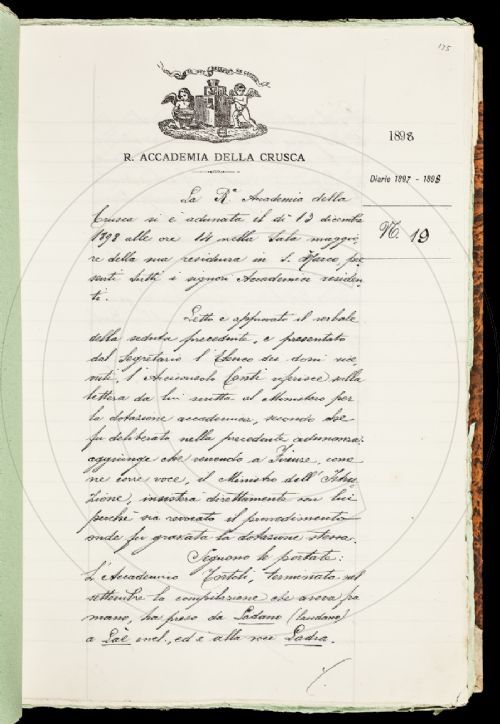 175
R. ACCADEMIA DELLA CRUSCA
1898
Diario 1897 - 1898
N. 19
La Rª Accademia della
Crusca si è adunata il dì 13 dicembre
1898 alle ore 14 nella Sala maggio,
re della sua residenza in S. Marco, pre
senti tutti i signori Accademici residen
ti.
Letto e approvato il verbale
della seduta precedente, e presentato
dal Segretario l'Elenco dei doni rice,
vuti, l'Arciconsolo Conti riferisce sulla
lettera da lui scritta al Ministero per
la dotazione accademica, secondo che
fu deliberato nella precedente adunanza;
aggiunge che venendo a Firenze, come
ne corre voce, il Ministro dell'Istru,
zione, insisterà direttamente con lui
perché sia revocato il provvedimento
onde fu gravata la dotazione stessa.
Seguono le portate:
L'Accademico Tortoli, terminata nel
settembre la compilazione che aveva fra
mano, ha preso da Ladano (Laudano)
a Laè incl., ed è alla voce Ladra.